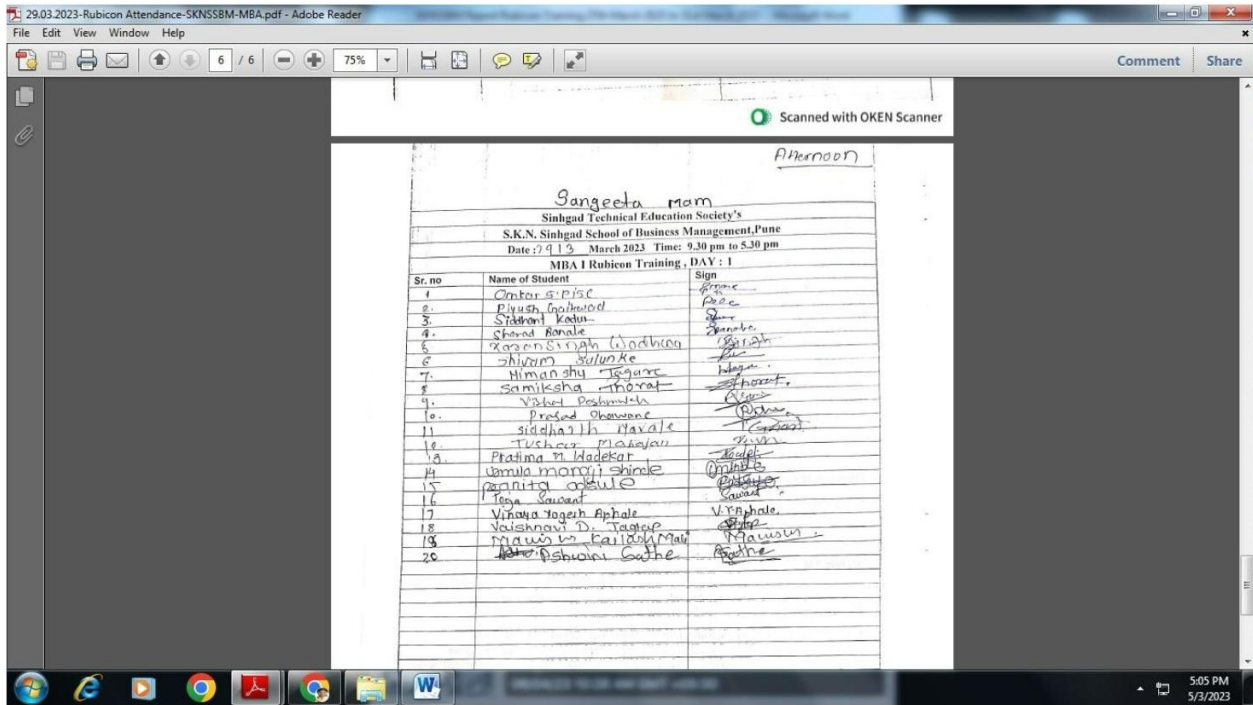 29.03.2023-Rubicon Attendance-SKNSSBM-MBA.pdf - Adobe Reader
File Edit View Window Help
6 / 6 75% Comment Share
Scanned with OKEN Scanner
Afternoon
Sangeeta mam
Sinhgad Technical Education Society's
S.K.N. Sinhgad School of Business Management,Pune
Date : March 2023 Time: 9.30 pm to 5.30 pm
MBA I Rubicon Training , DAY : 1
Sr. no Name of Student Sign
1 Omkar S. Pise
2. Piyush Gaikwad
3. Siddhant Kadu
4. Sharad Ranale
5 Karansingh Wadhwa
6 Shivam Salunke
7. Himanshu Tagare
8 Samiksha Thorat Sthorat.
9. Vishal Deshmukh
10. Prasad
11 Siddharth Navale
12. Tushar Mahajan
13. Pratima M. Wadekar
14
15
16 Pooja Sawant Sawant
17 Vinaya Yogesh Aphale V.Y.Aphale
18 Vaishnavi D. Jagtap
19 Kailash Mali
20 Ashwini Gathe Gathe
5:05 PM
5/3/2023